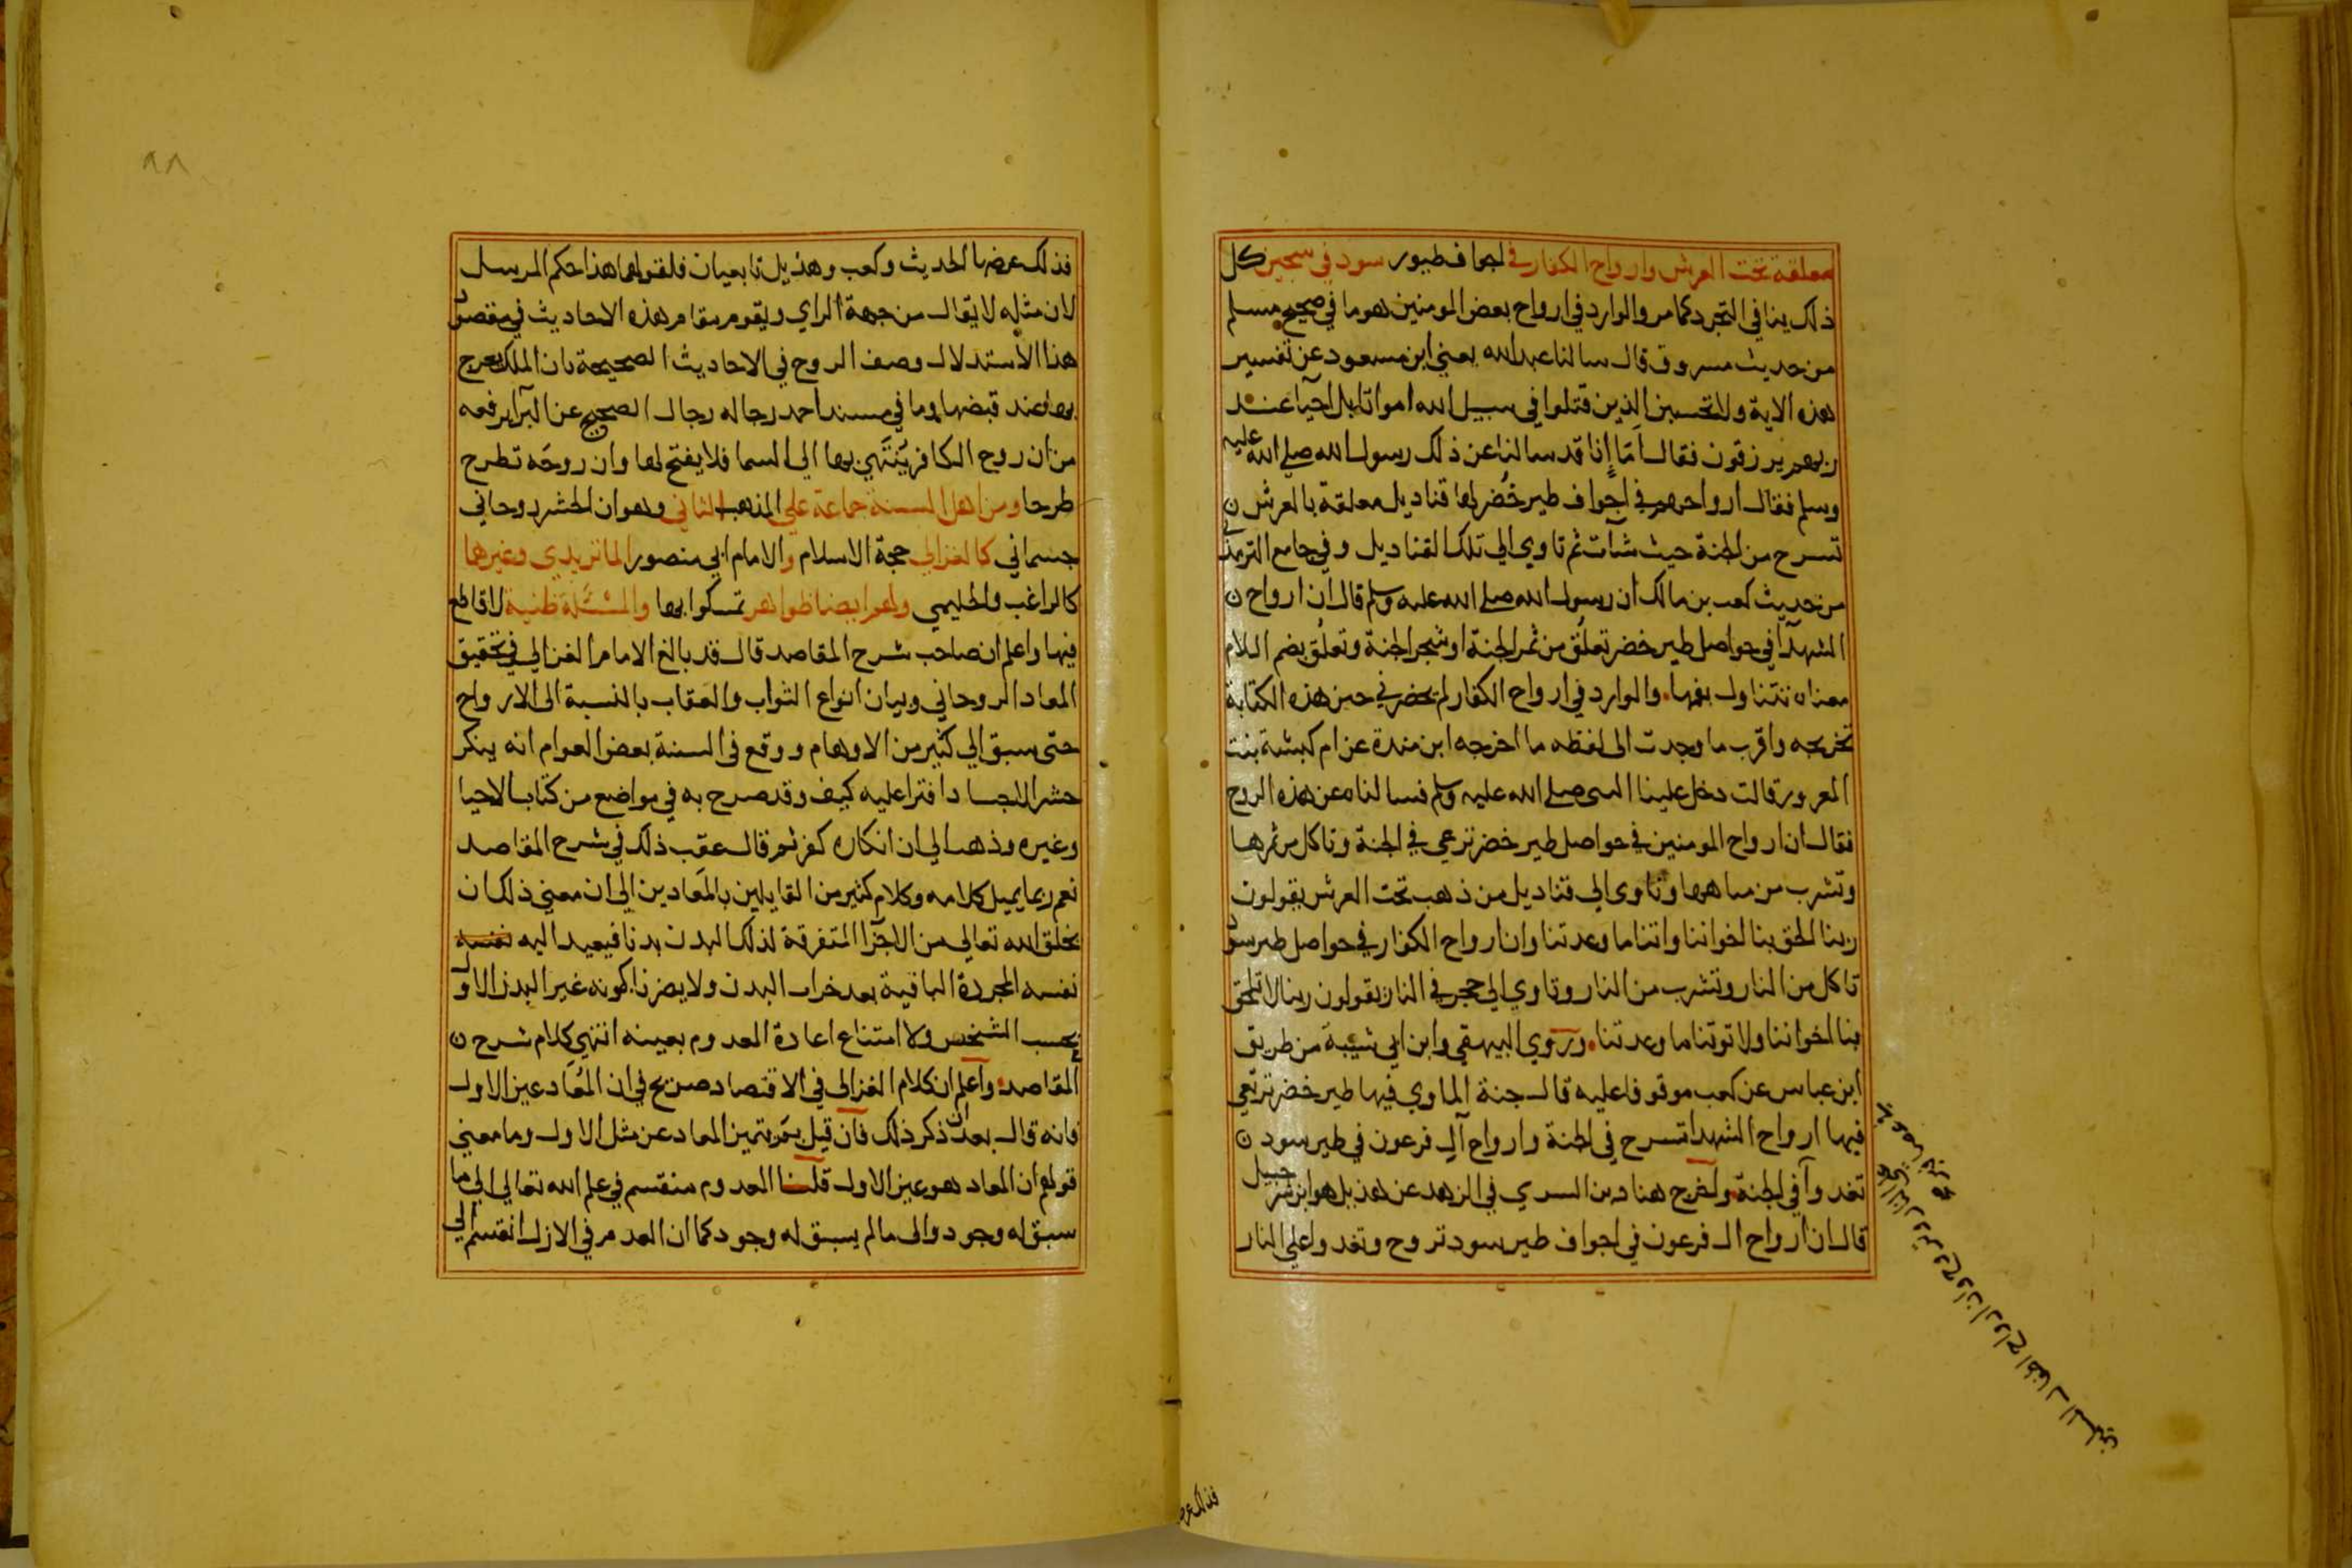 معلقة تحت العرش وارواح الكفار في اجواف طيور سود في سجين كل
ذلك ينافي التجرد كما مر والوارد في ارواح بعض المومنين هو ما في صحيح مسلم
من حديث مسروق قال سالنا عبد الله يعني ابن مسعود عن تفسير
هذه الاية ولا تحسبن الذين قتلوا في سبيل الله امواتا بل احيآ عند
ربهم يرزقون فقال اَمَا إنا قد سالنا عن ذلك رسول الله صلى الله عليه
وسلم فقال ارواحهم في اجواف طير خُضر لها قناديل معلقة بالعرش
تسرح من الجنة حيث شآت ثم تاوي الي تلك القناديل وفي جامع الترمذي
من حديث كعب بن مالك ان رسول الله صلى الله عليه وسلم قال ان ارواح
الشهدآ في حواصل طير خضر تعلُق من ثمر الجنة او شجر الجنة وتعلُق بضم اللام
معناه تتناول بفمها والوارد في ارواح الكفار لم يحضرني حين هذه الكتابة
تخريجه واقرب ما وجدت الى لفظه ما اخرجه ابن مندة عن ام كبشة بنت
المعرور قالت دخل علينا النبي صلى الله عليه وسلم فسالناه عن هذه الروح
فقال ان ارواح المومنين في حواصل طير خضر ترعي في الجنة وتاكل من ثمرها
وتشرب من مياهها وتاوى الي قناديل من ذهب تحت العرش يقولون
ربنا الحق بنا اخواننا واتنا ما وعدتنا وان ارواح الكفار في حواصل طير سود
تاكل من النار وتشرب من النار وتاوي الي حجر في النار يقولون ربنا لا تلحق
بنا اخواننا ولا توتنا ما وعدتنا وروي البيهقي وابن ابي شيبة من طريق
ابن عباس عن كعب موقوفا عليه قال جنة الماوي فيها طير خضر ترتعي
فيها ارواح الشهدا تسرح في الجنة وارواح آل فرعون في طير سود
تغدوا في الجنة واخرج هناد بن السري في الزهد عن هذيل هو ابن شرحبيل
قال ان ارواح ال فرعون في اجواف طير سود تروح وتغدوا علي النار
فذلك عرضها
٩٨
فذلك عرضها الحديث وكعب وهذيل تابعيان فلقولهما هذا حكم المرسل
لان مثله لا يقال من جهة الراي ويقوم مقام هذه الاحاديث في مقصود
هذا الاستدلال وصف الروح في الاحاديث الصحيحة بان الملك يعرج
بها عند قبضها وما في مسند احمد رجاله رجال الصحيح عن البرآ يرفعه
من ان روح الكافر يُنتَهي بها الي السما فلا يفتح لها وان روحَه تطرح
طرحا ومن اهل السنة جماعة علي المذهب الثاني وهو ان الحشر روحاني
جسماني كالغزالي حجة الاسلام والامام ابي منصور الماتريدي وغيرهما
كالراغب والحليمي ولهم ايضا ظواهر تمسكوا بها والمسئلة ظنية لا قاطع
فيها واعلم ان صاحب شرح المقاصد قال قد بالغ الامام الغزالي في تحقيق
المعاد الروحاني وبيان انواع الثواب والعقاب بالنسبة الى الارواح
حتى سبق الي كثير من الاوهام ووقع فى السنة بعض العوام انه ينكر
حشر الاجساد افترا عليه كيف وقد صرح به في مواضع من كتاب الاحيا
وغيره وذهب الي ان انكاره كفر ثم قال عقب ذلك في شرح المقاصد
نعم ربما يميل كلامه وكلام كثير من القايلين بالمَعادين الي ان معني ذلك ان
يخلق الله تعالي من الاجزآ المتفرقة لذلك البدن بدنا فيعيد اليه نفسه
نفسه المجردة الباقية بعد خراب البدن ولا يضرنا كونه غير البدن الاول
بحسب الشخص ولا امتناع اعادة المعدوم بعينه انتهي كلام شرح
المقاصد واعلم ان كلام الغزالى في الاقتصاد صريح في ان المُعَاد عين الاول
فانه قال بعد ان ذكر ذلك فان قيل بِمَ يتميز المعاد عن مثل الاول وما معني
قولهم ان المعاد هو عين الاول قلنا المعدوم منقسم في علم الله تعالي الي ما
سبق له وجود والى ما لم يسبق له وجود كما ان العدم في الازل انقسم الي